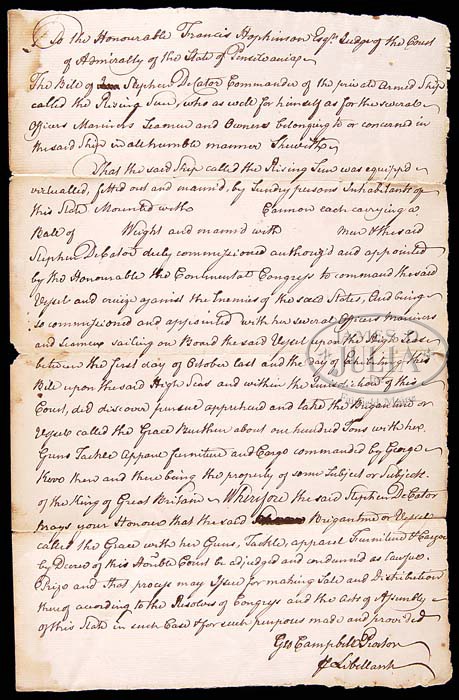 To the Honourable Francis Hopkinson Esqr. Judge of the Court
of Admiralty of the State of Pensilvania
The Bill of Stephen DeCator Commander of the private Armed Ship
called the Rising Sun, who as well for himself as for the several
Officers Mariners Seamen and Owners belonging to or concerned in
the said Ship in all humble manner Sheweth
That the said Ship called the Rising Sun was equipp'd
victualled, fitted out and mann'd, by Sundry persons Inhabitants of
this State Mounted with Cannon each carrying a
Ball of Weight and mann'd with Men & the said
Stephen DeCator duly commissioned authoriz'd and appointed
by the Honourable the Continental Congress to command the said
Vessel and cruize against the Enemies of the said States, And being
so commissioned and appointed with her several Officers Mariners
and Seamen sailing on Board the said Vessel upon the High Seas
between the first day of October last and the day of Exhibiting this
Bill upon the said High Seas and within the Jurisdiction of this
Court, did discover pursue apprehend and take the Brigantine or
Vessel called the Grace Burthen about one hundred Tons with her
Guns Tackle Apparel furniture and Cargo commanded by George
then and there being the property of some Subject or Subjects
of the King of Great Britain Wherefore the said Stephen DeCator
prays your Honour that the said Brigantine or Vessel
called the Grace with her Guns, Tackle, apparel Furniture & Cargoe
by Decree of this Honble Court be adjudged and condemned as lawfull
Prize and that process may Issue for making Sale and Distribution
thereof according to the Resolves of Congress and the Acts of Assembly
of this State in such Case & for such purposes made and provided
Geo Campbell Proctor
pr Libellant
JAMES D.
JULIA